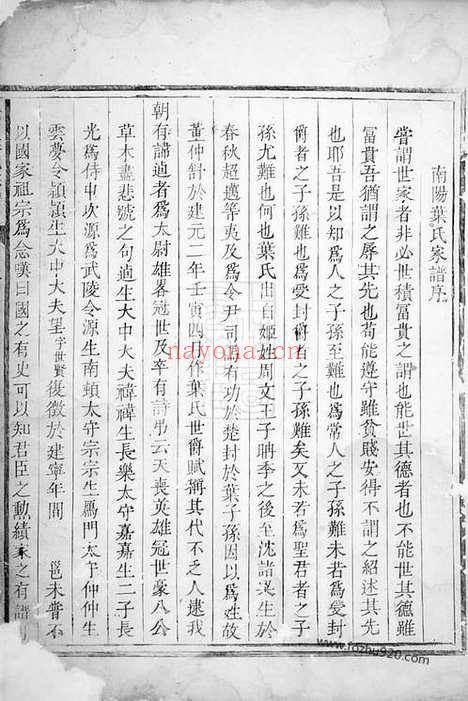 南陽葉氏家譜序
嘗謂世家者非必世積富貴之謂也能世其德者也不能世其德雖
富貴吾猶謂之辱其先也苟能遵守雖貧賤安得不謂之紹述其先
也耶吾是以知為人之子孫至難也為常人之子孫難未若為受封
爵者之子孫難也為受封爵者之子孫難矣又未若為聖君者之子
孫尤難也何也葉氏出自姬姓周文王子聃季之後至沈諸梁生於
春秋超邁等夷及為令尹司馬有功於楚封於葉子孫因以為姓故
董仲舒於建元二年壬寅四月作葉氏世爵賦稱其代不乏人逮我
朝有諦適者為太尉雄畧冠世及卒有詩弔云天喪英雄冠世豪八公
草木盡悲號之句適生大中大夫禕禕生長樂太守嘉嘉生二子長
光為侍中次源為武陵令源生南頓太守宗宗生鴈門太守仲仲生
雲夢令穎穎生大中大夫望字世賢復徵於建寧年間　邕未嘗不
以國家祖宗為念嘆曰國之有史可以知君臣之勳績家之有譜
nayona.cn
www.fozhu920.com